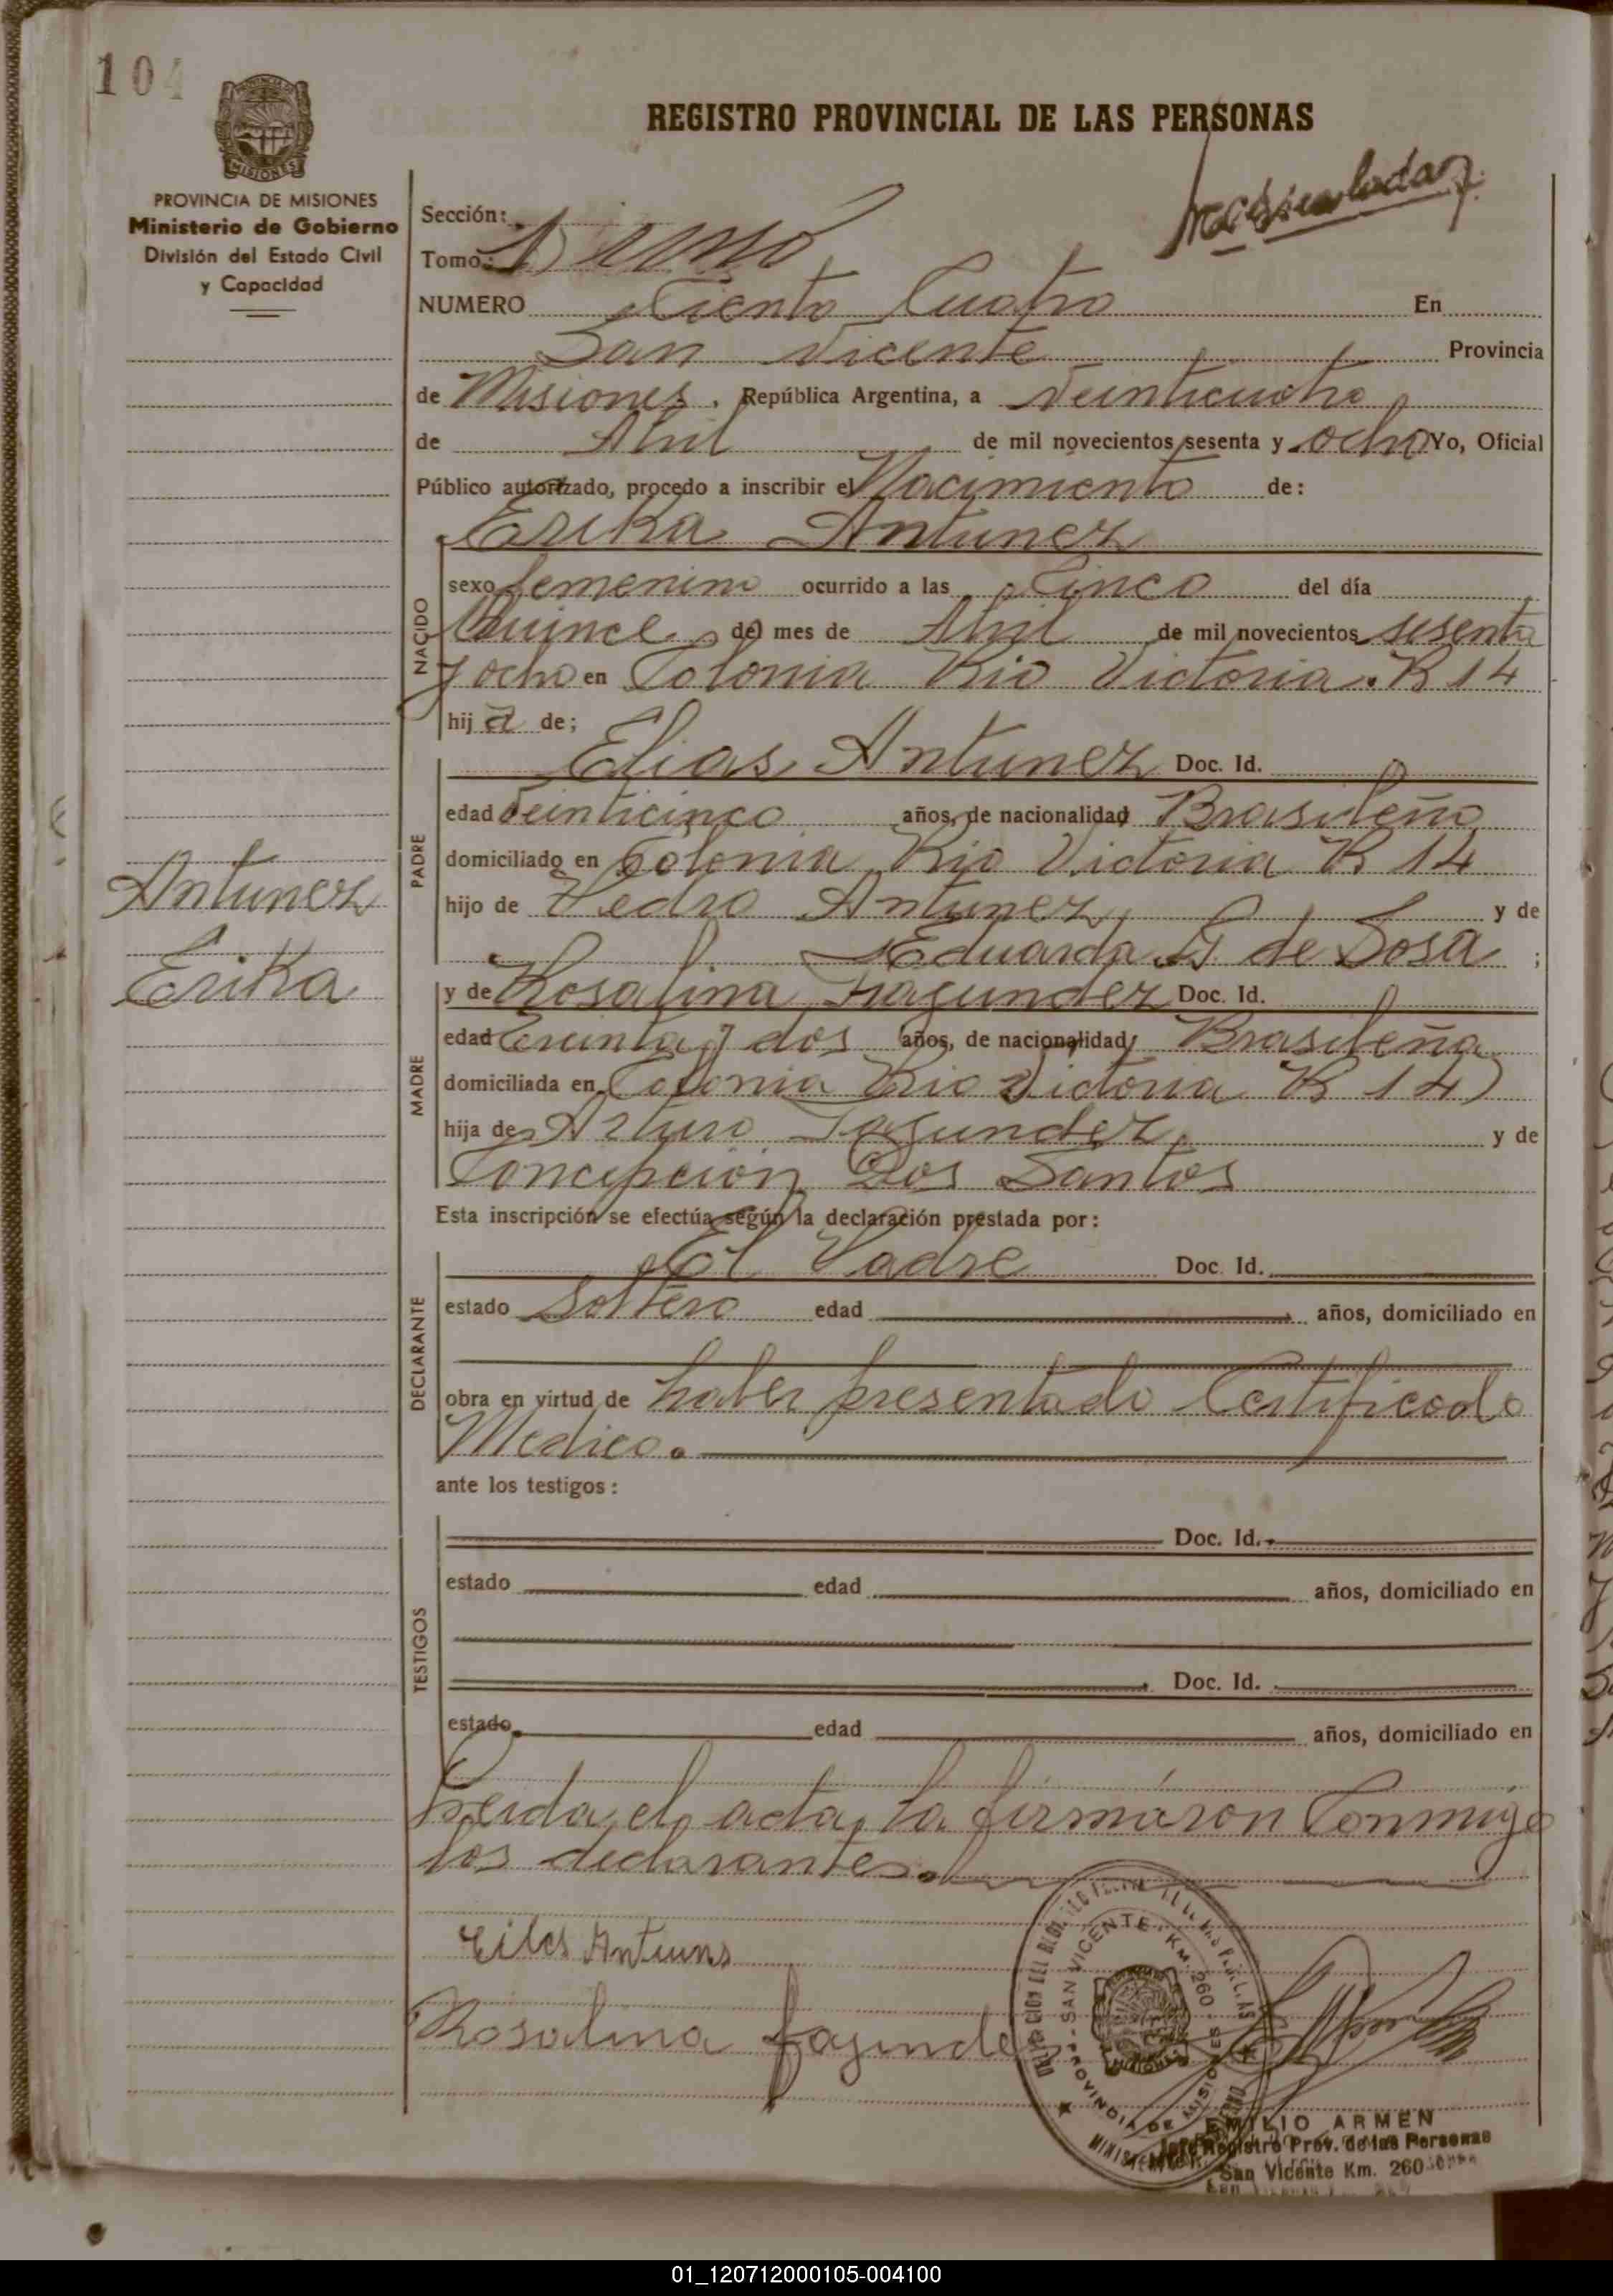 104
REGISTRO PROVINCIAL DE LAS PERSONAS
PROVINCIA DE MISIONES
Ministerio de Gobierno
División del Estado Civil
y Capacidad
Sección:
Tomo:
NUMERO Ciento Cuatro En
San Vicente Provincia
de Misiones. República Argentina, a Veinticuatro
de Abril de mil novecientos sesenta y ocho Yo, Oficial
Público autorizado, procedo a inscribir el Nacimiento de:
Erika Antunez
NACIDO
sexo femenino ocurrido a las Cinco del día
Quince del mes de Abril de mil novecientos sesenta
y ocho en Colonia Rio Victoria. R 14
hij a de;
PADRE
Elias Antunez Doc. Id.
edad Veinticinco años, de nacionalidad Brasileño
domiciliado en Colonia Rio Victoria R 14
hijo de Pedro Antunez y de
Eduarda G de Sosa ;
MADRE
y de Rosalina Fragundez Doc. Id.
edad Treinta y dos años, de nacionalidad Brasileña
domiciliada en Colonia Rio Victoria R 14
hija de Arturo Fagundez y de
Concepcion Dos Santos
Antunez
Erika
Esta inscripción se efectúa según la declaración prestada por:
DECLARANTE
El Padre Doc. Id.
estado Soltero edad años, domiciliado en
obra en virtud de haber presentado Certificado
Medico.
ante los testigos:
TESTIGOS
Doc. Id.
estado edad años, domiciliado en
Doc. Id.
estado edad años, domiciliado en
Leida el acta, la firmaron Conmigo
los declarantes.
Antunns
Rosalina fagunde
SAN VICENTE - KM. 260
PROVINCIA DE MISIONES
EMILIO ARMEN
Jefe Registro Prov. de las Personas
San Vicente Km. 260
01_120712000105-004100